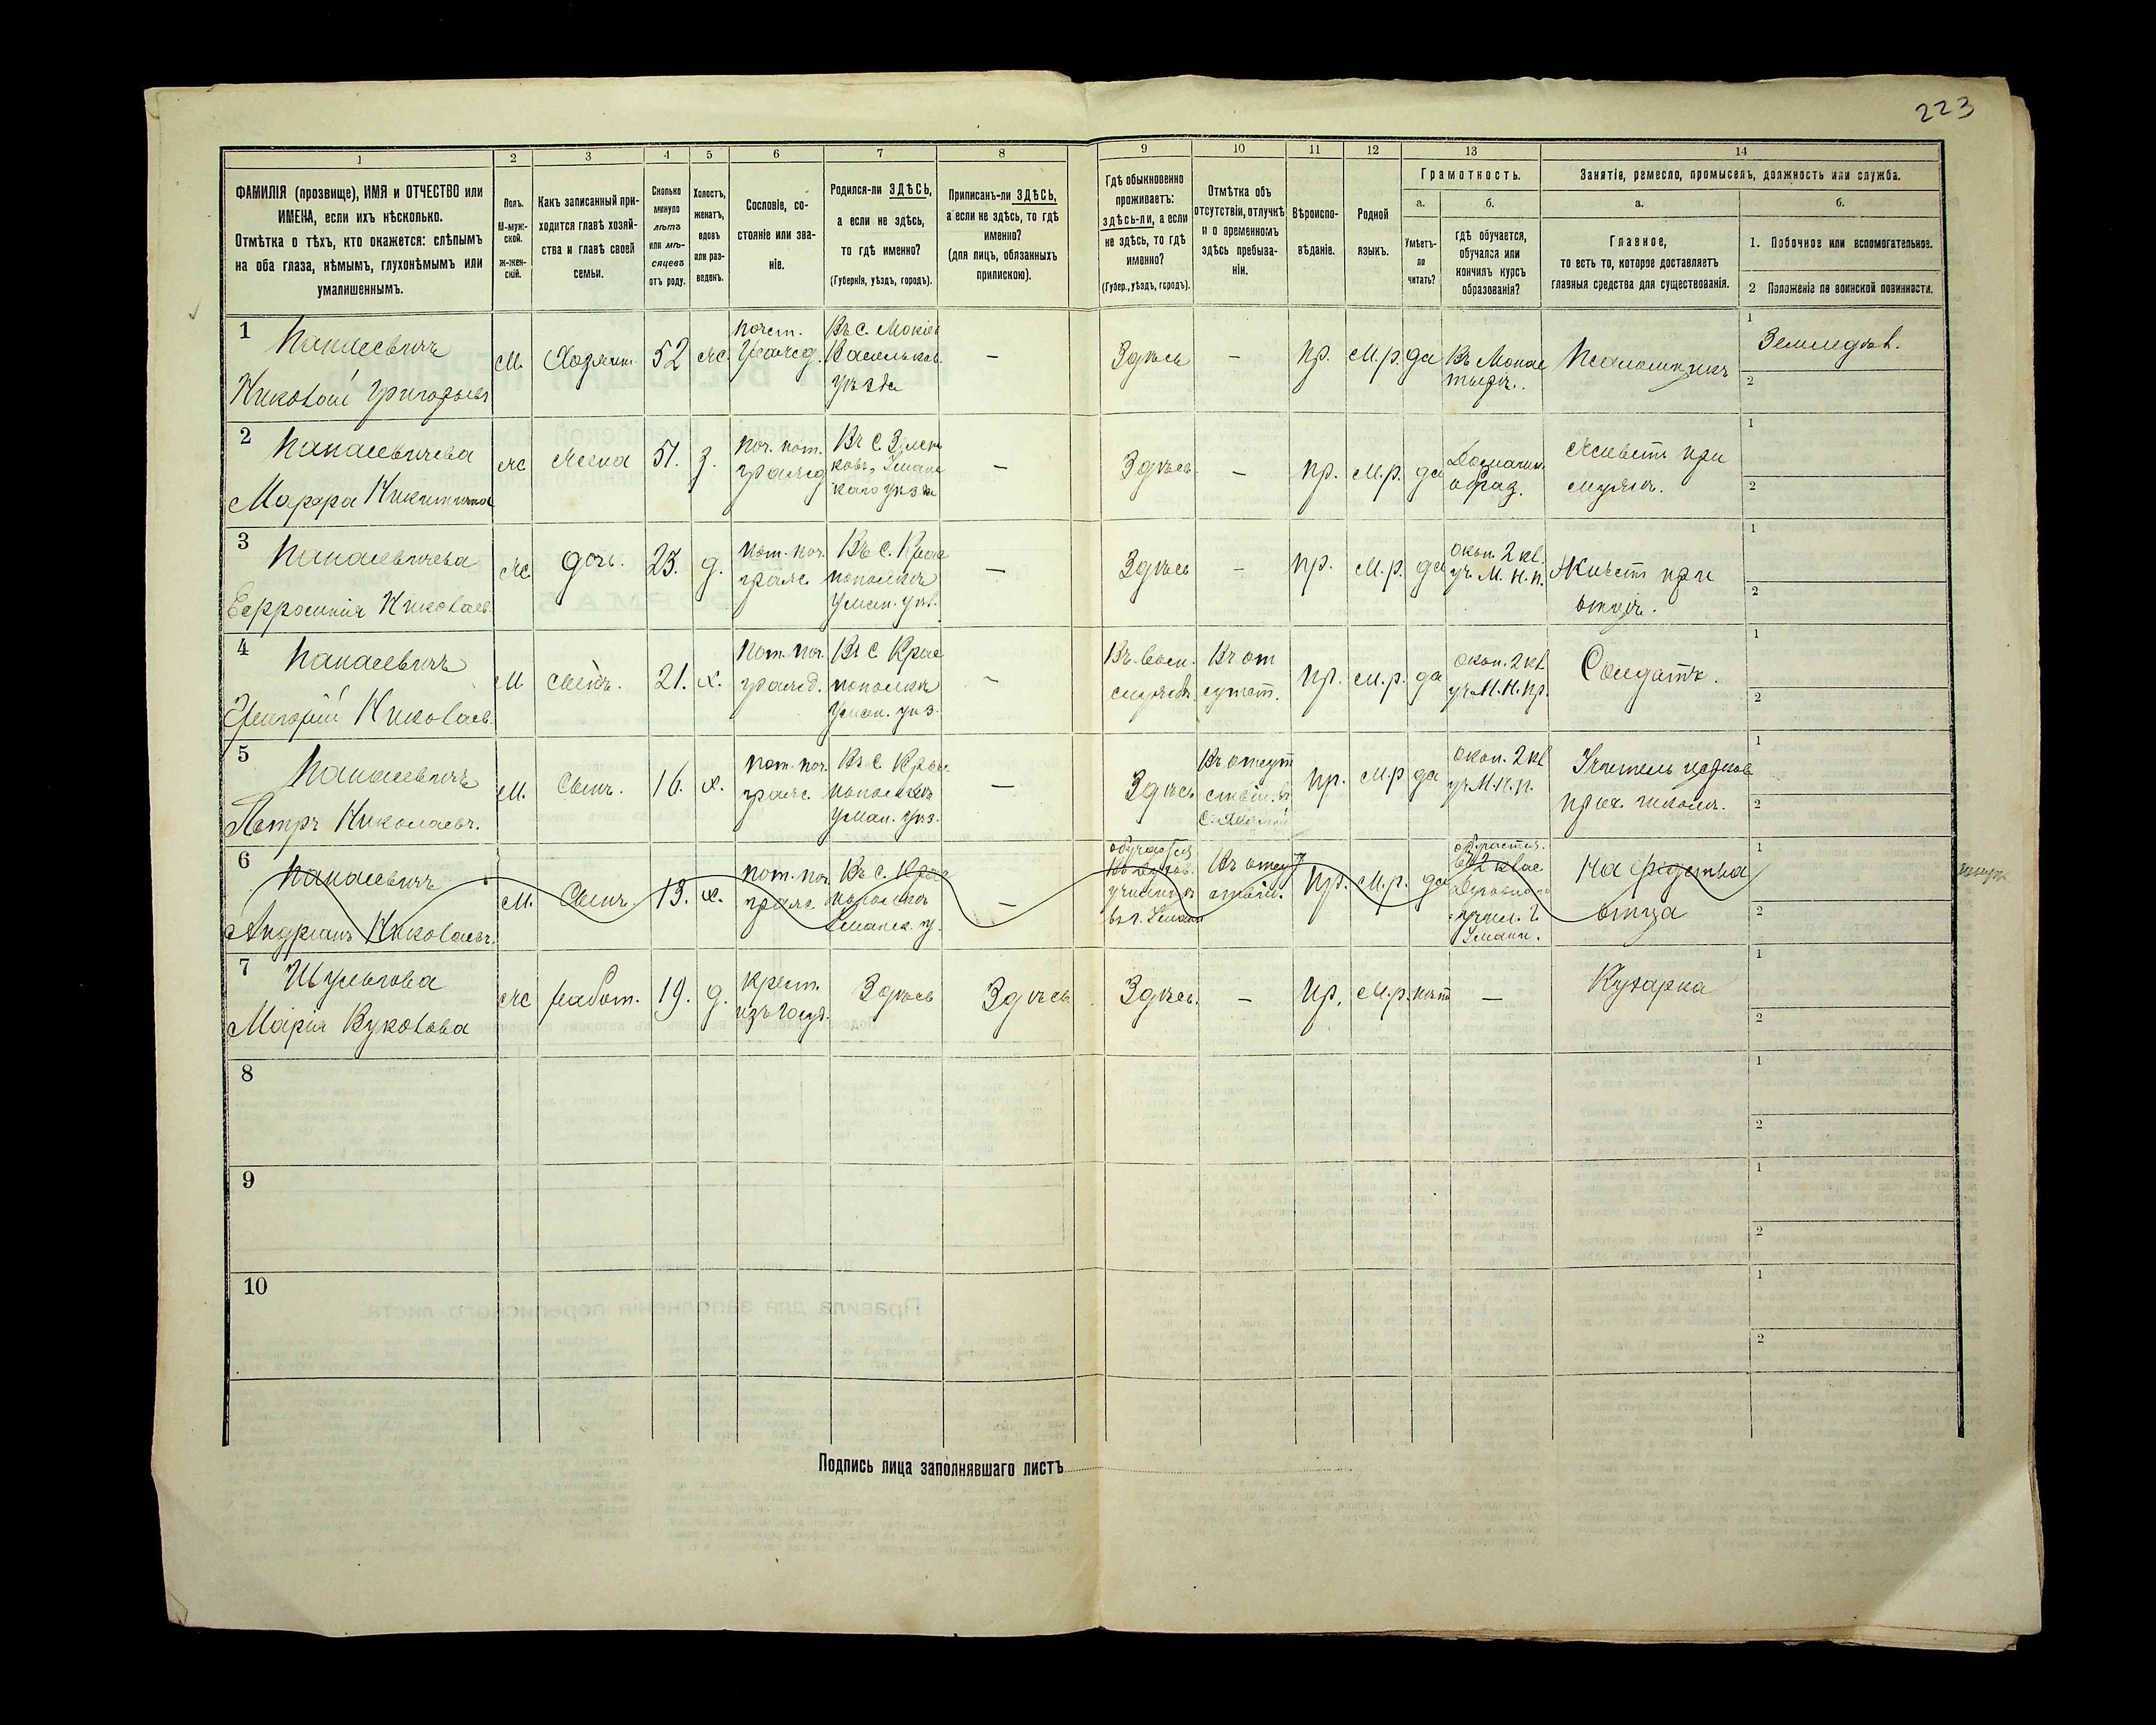 223
1
2
3
4
5
6
7
8
9
10
11
12
13
14
ФАМИЛІЯ (прозвище), ИМЯ и ОТЧЕСТВО или
ИМЕНА, если ихъ нѣсколько.
Отмѣтка о тѣхъ, кто окажется: слѣпымъ
на оба глаза, нѣмымъ, глухонѣмымъ или
умалишеннымъ.
Полъ.
М-муж-
ской.
ж-жен-
скій.
Какъ записанный при-
ходится главѣ хозяй-
ства и главѣ своей
семьи.
Сколько
минуло
лѣтъ
или мѣ-
сяцевъ
отъ роду.
Холостъ,
женатъ,
вдовъ
или раз-
веденъ.
Сословіе, со-
стояніе или зва-
ніе.
Родился-ли ЗДѢСЬ,
а если не здѣсь,
то гдѣ именно?
(Губернія, уѣздъ, городъ).
Приписанъ-ли ЗДѢСЬ,
а если не здѣсь, то гдѣ
именно?
(для лицъ, обязанныхъ
припискою).
Гдѣ обыкновенно
проживаетъ:
здѣсь-ли, а если
не здѣсь, то гдѣ
именно?
(Губер., уѣздъ, городъ).
Отмѣтка объ
отсутствіи, отлучкѣ
и о временномъ
здѣсь пребыва-
ніи.
Вѣроиспо-
вѣданіе.
Родной
языкъ.
Грамотность.
а.
Умѣетъ-
ли
читать?
б.
гдѣ обучается,
обучался или
кончилъ курсъ
образованія?
Занятіе, ремесло, промыселъ, должность или служба.
а.
Главное,
то есть то, которое доставляетъ
главныя средства для существованія.
б.
1. Побочное или вспомогательное.
2 Положеніе по воинской повинности.
1
Николай Григорьев
М.
Хозяин
52
ж.
почет.
гражд.
Въ с.
Васильков.
уѣзда
—
Здѣсь
—
пр.
м.р.
да
Псаломщикъ
1
Земледѣл.
2
2
Марфа Никитична
ж
жена
51.
з.
поч. пот.
гражд
Въ с. Зелен
ковѣ, Уманс
каго уѣзда
—
Здѣсь
—
пр.
м.р.
да
Домашн.
образ.
Живетъ при
мужѣ.
1
2
3
Евфросинія Николаев.
ж.
дочь.
23.
д.
пот. поч.
граж.
Въ с. Крас
нополкѣ
Уман. уѣз.
—
Здѣсь
—
пр.
м.р.
да
окон. 2 кл.
уч. М. Н. п.
Живет при
отцѣ.
1
2
4
Григорій Николаев.
М
сынъ.
21.
х.
пот. поч.
гражд.
Въ с. Крас
нополкѣ
Уман. уѣз.
—
Въ воен.
службѣ.
Въ от
сутст.
пр.
м.р.
да
окон. 2 кл.
уч. М. Н. пр.
Солдатъ.
1
2
5
Петръ Николаевъ.
М.
Сынъ.
16.
х.
пот. поч.
граж.
Въ с. Крас
нополкѣ
Уман. уѣз.
—
Здѣсь
Въ отсут
ствіи. въ
пр.
м.р
да
окон. 2 кл
уч М. Н. п.
Учитель церков
прих. школы.
1
2
6
Андріанъ Николаевъ.
М.
Сынъ.
13.
х.
пот. поч.
граж.
Въ с. Крас
нополкѣ
Уманск. у.
—
обучается
въ духов.
училищѣ
въ г. Умани
Въ отсут
ствіи.
пр.
м.р.
да
обучается.
во 2 клас
Духовного
учил. г.
Умани.
на средства
отца
1
2
7
Шульгова
Марія Вуколова
ж
работ.
19.
д.
крест.
изъ госуд.
Здѣсь
Здѣсь
Здѣсь.
—
пр.
м.р.
нѣт
—
Кухарка
1
2
8
1
2
9
1
2
10
1
2
Подпись лица заполнявшаго листъ